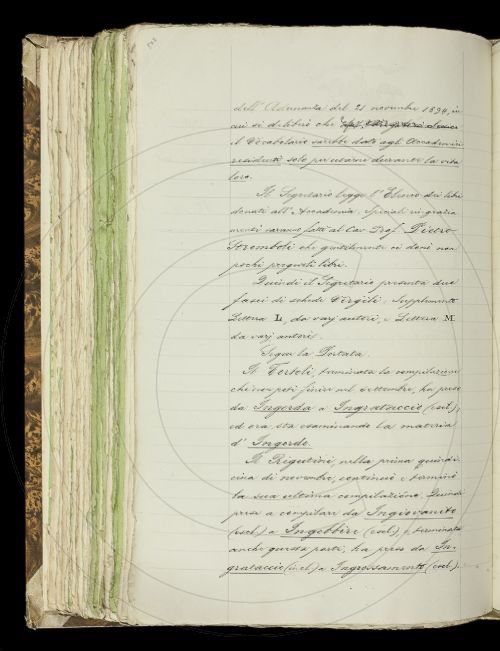 dell'Adunanza del 21 novembre 1894, in
cui si deliberò che
il Vocabolario sarebbe dato agli Accademici
residenti solo per usarne durante la vita
loro.
Il Segretario legge l'Elenco dei libri
donati all'Accademia. Speciali ringrazia-
menti saranno fatti al Cav. Prof. Pietro
che gentilmente ci donò non
pochi pregiati libri.
Quindi il Segretario presenta due
fasci di schede Vergili: Supplimento
Lettera L, da varj autori, e Lettera M.
da varj autori.
Segue la Tornata.
Il Tortoli, terminata la compilazione
che non potè finire nel settembre, ha preso
da Ingorda a Ingrataccio (escl.),
ed ora sta esaminando la materia
d'Ingordo.
Il Rigutini, nella prima quindi-
cina di novembre, continuò e terminò
la sua ultima compilazione. Quindi
prese a compilare da Ingiovanito
(escl.) a Ingobbire (escl.), e terminata
anche questa parte, ha preso da In-
grataccio (incl.) a Ingrossamento (escl.).